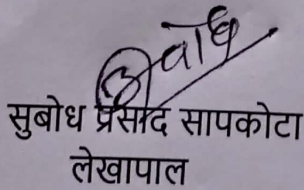 सुबोध प्रसाद सापकोटा
लेखापाल